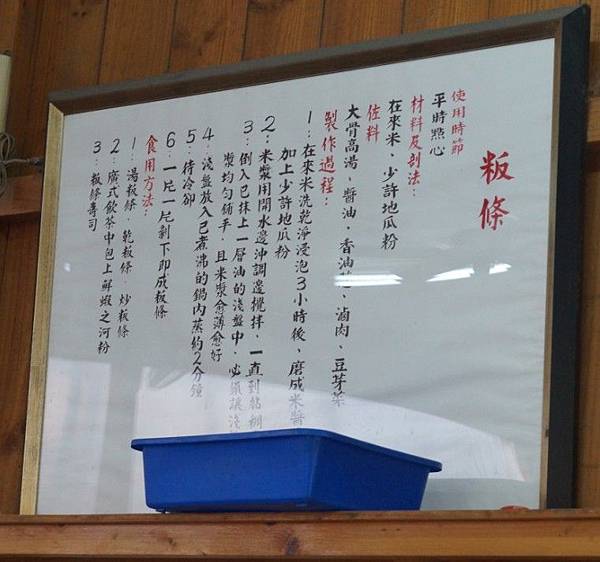 粄條
使用時節
平時點心
材料及剖法：
在來米、少許地瓜粉
佐料
大骨高湯、醬油、香油、滷肉、豆芽菜
製作過程：
1：在來米洗乾淨浸泡3小時後，磨成米醬
加上少許地瓜粉
2：米漿用開水邊沖調邊攪拌，一直到黏稠
3：倒入已抹上一層油的淺盤中，必須讓淺
漿均勻鋪平，且米漿愈薄愈好
4：淺盤放入已煮沸的鍋內蒸約2分鐘
5：待冷卻
6：一片一片剝下即成粄條
食用方法：
1：湯粄條．乾粄條．炒粄條
2：廣式飲茶中包上鮮蝦之河粉
3：粄條壽司